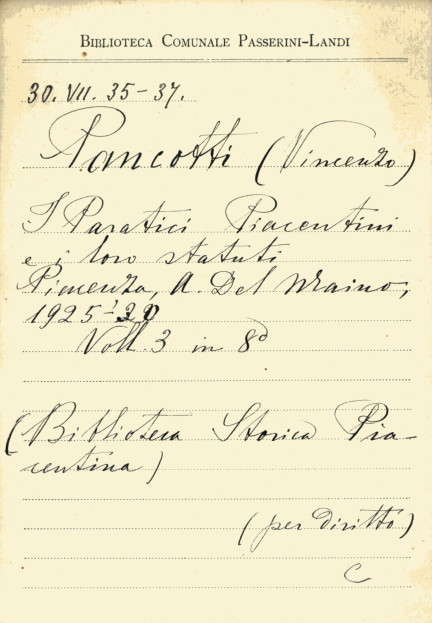 BIBLIOTECA COMUNALE PASSERINI-LANDI
30. VII. 35-37.
Pancotti (Vincenzo)
I Paratici Piacentini
e i loro statuti
Piacenza, A. Del Maino,
1925-30
Voll. 3 in 8º
(Biblioteca Storica Pia-
centina)
(per diritto)
C